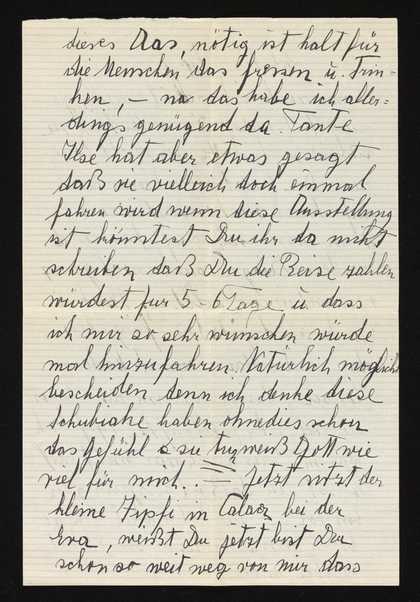 dieses Das, nötig ist halt für
die Menschen das fressen u. Trin-
ken, – na das habe ich aller=
dings genügend da. Tante
Ilse hat aber etwas gesagt
daß sie vielleich doch einmal
fahren wird wenn diese Ausstellung
ist, könntest Du ihr da nicht
schreiben daß Du die Reise zahlen
würdest für 5-6 Tage u. dass
ich mir so sehr wünschen würde
mal hinzufahren. Natürlich möglichst
bescheiden denn ich denke diese
Schubiake haben ohnedies schon
das gefühl sie tun weiß Gott wie
viel für mich. – Jetzt sitzt der
kleine Zipfi in bei der
Eva, weißt Du jetzt bist Du
schon so weit weg von mir dass